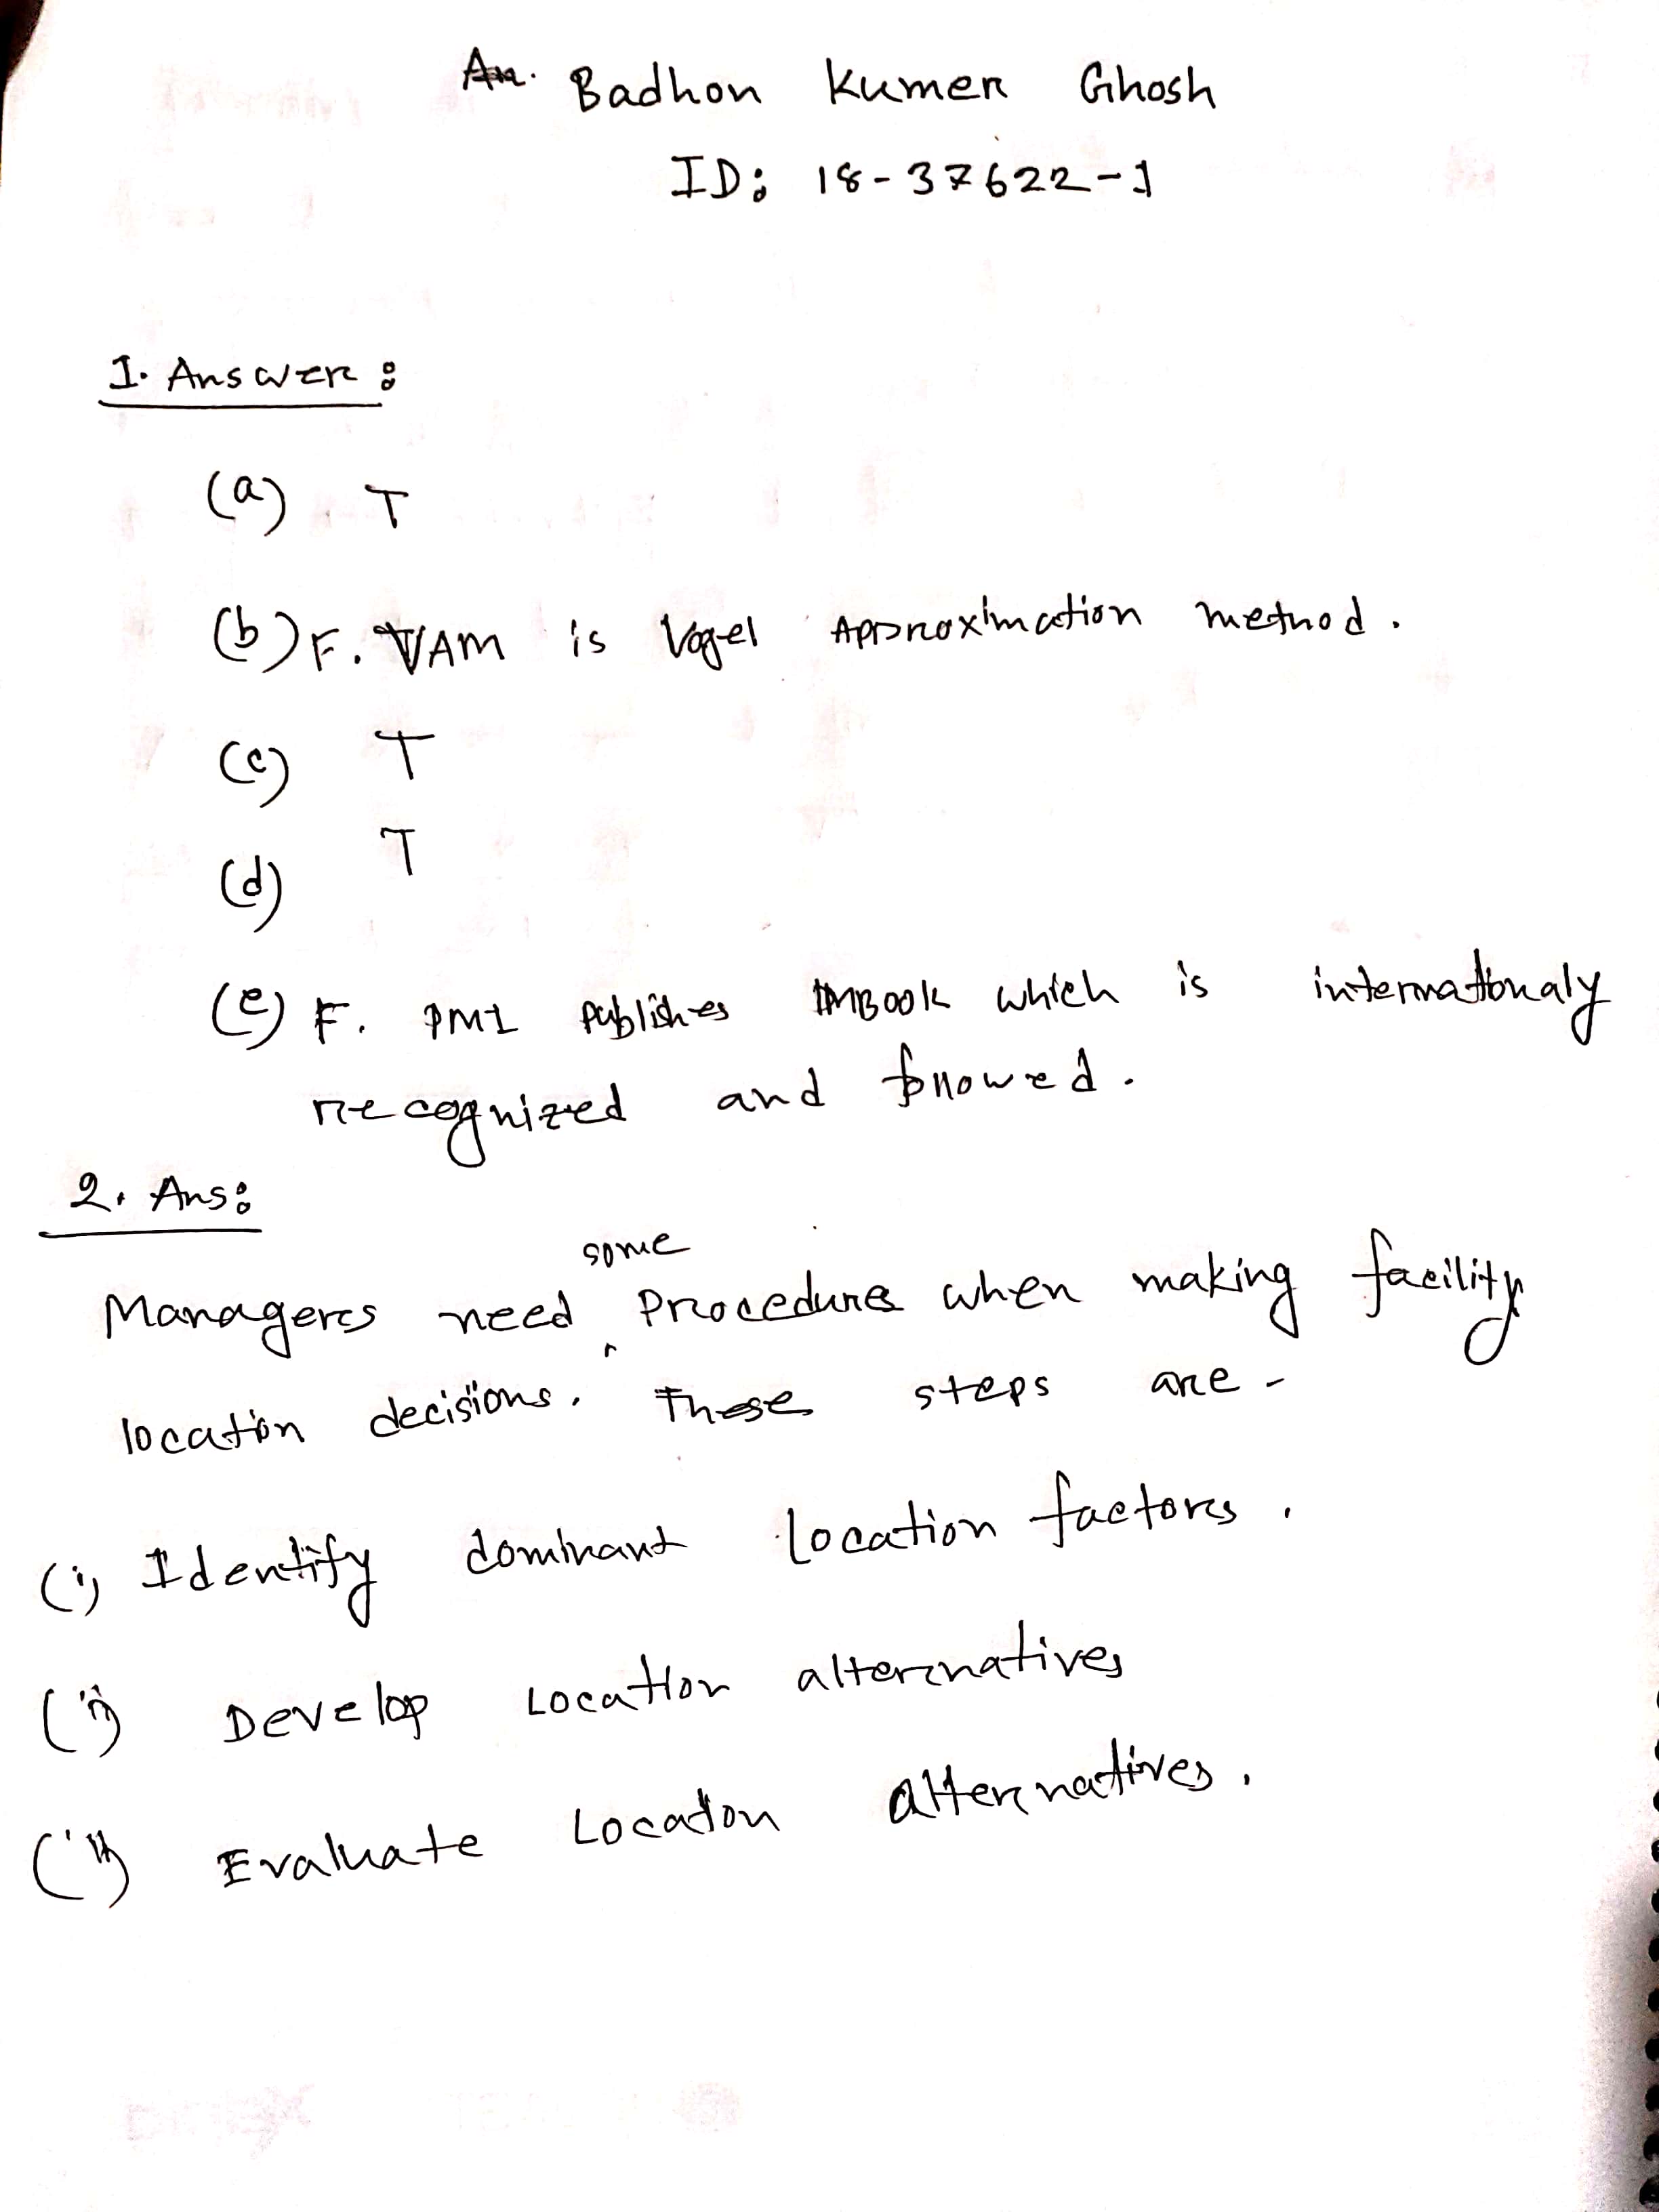 Badhon Kumer Ghosh
ID: 18-37622-1
1. Answer:
(a) T
(b) F. VAM is Vogel Approximation method.
(c) T
(d) T
(e) F. PMI publishes which is internationaly
recognized and followed.
2. Ans:
some
Managers need Procedures when making facility
location decisions. These steps are -
(i) Identify dominant location factors.
(ii) Develop Location alternatives
(iii) Evaluate Location alternatives.